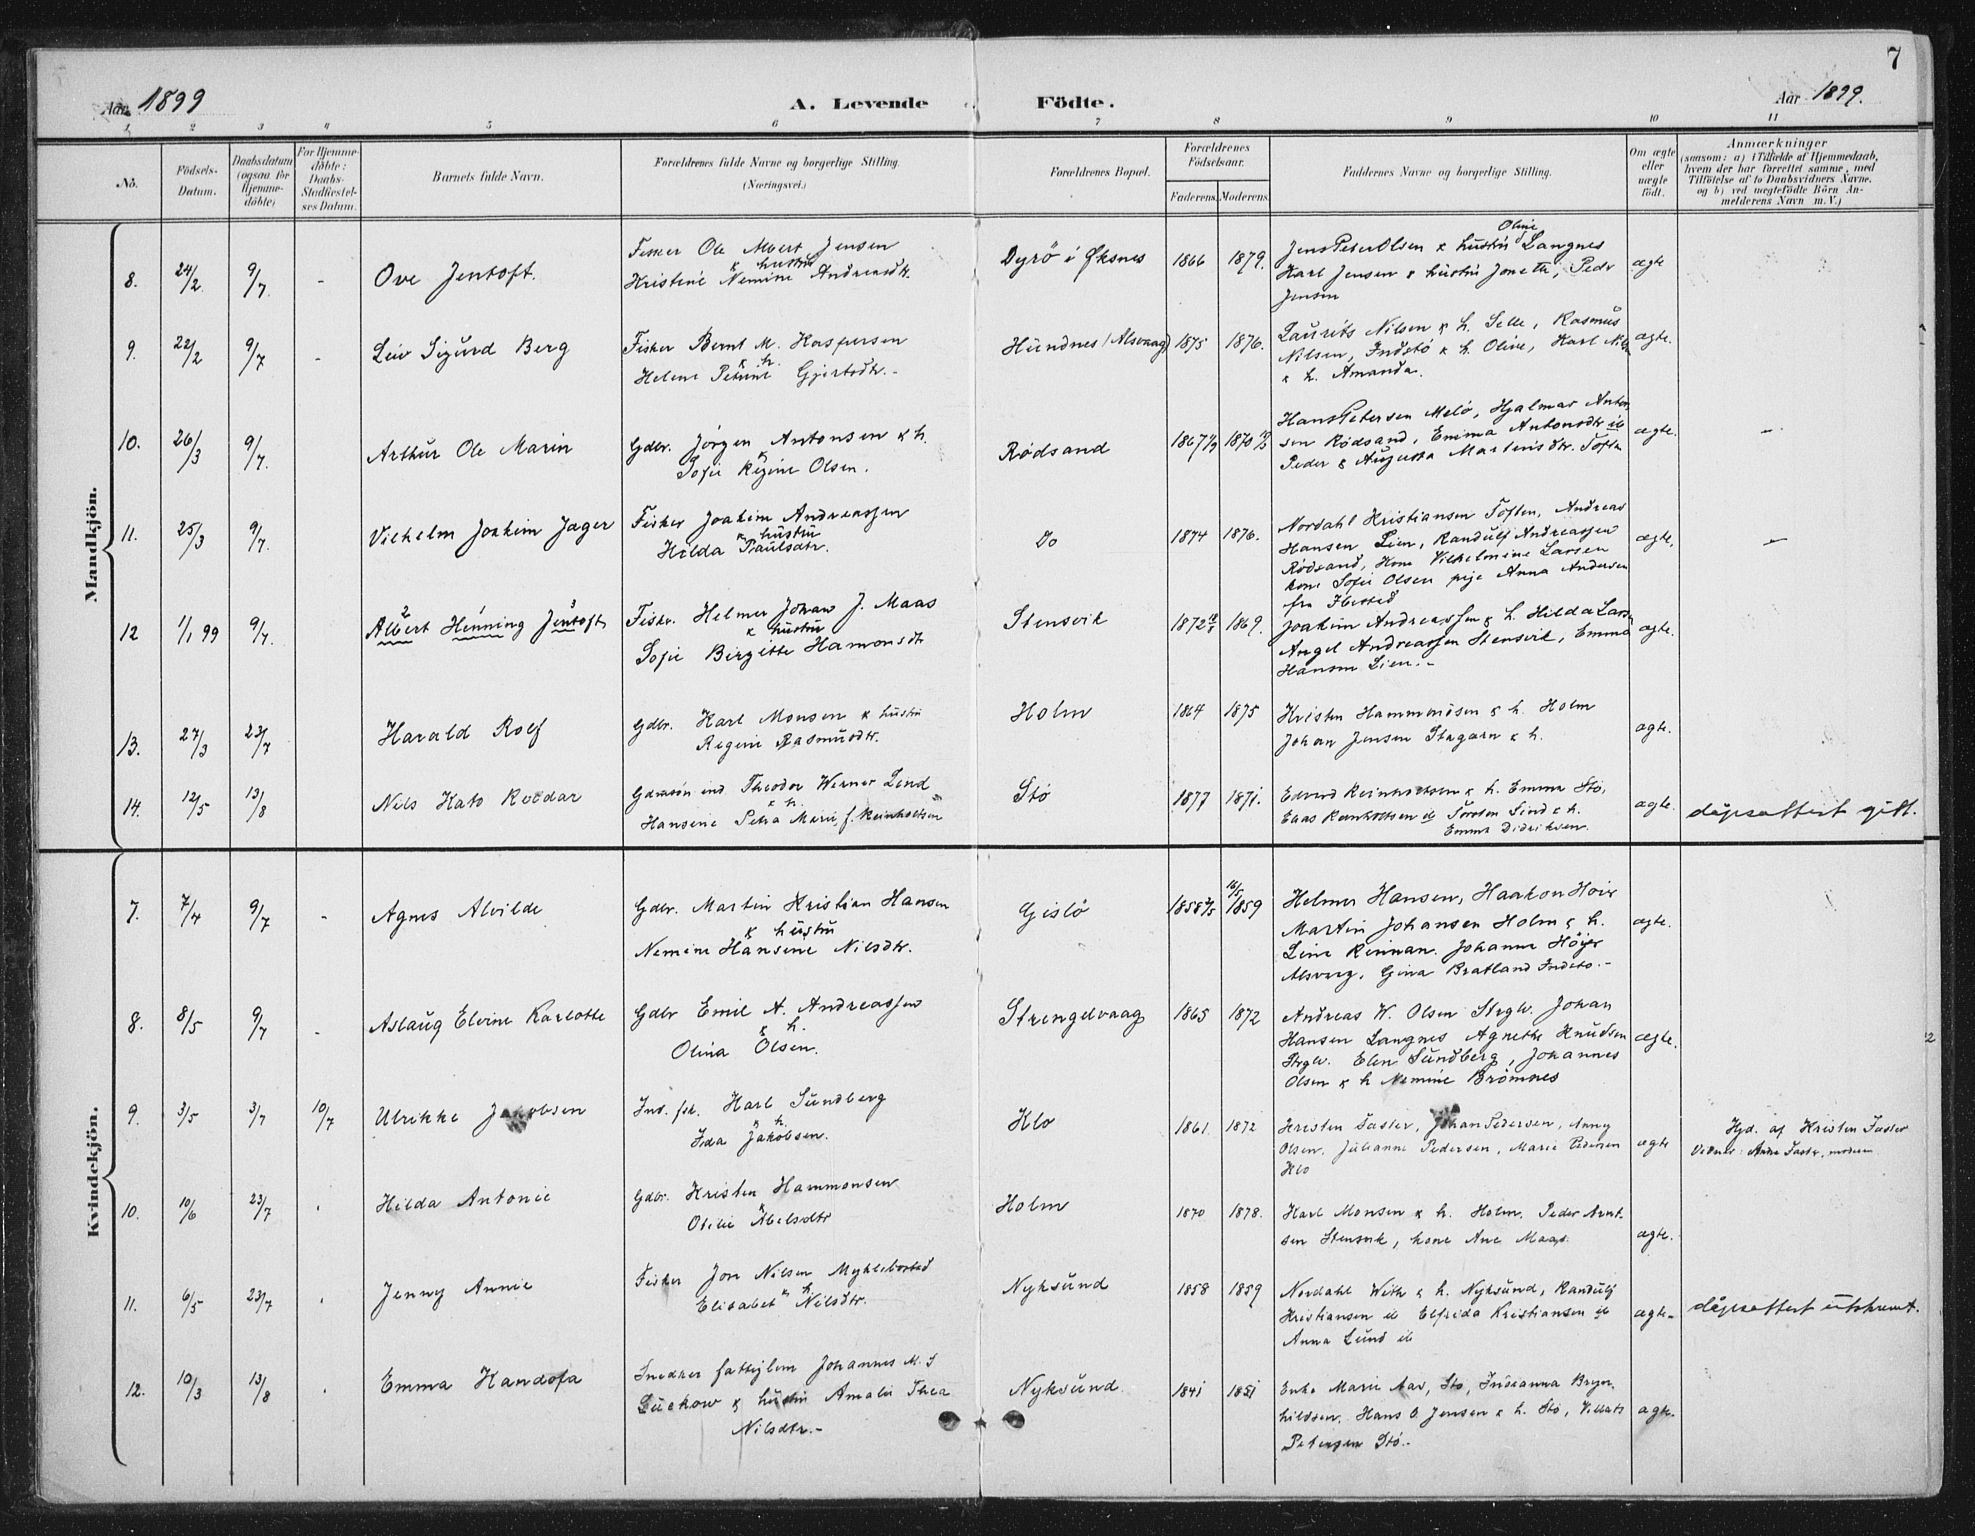 7
Aar 1899
A. Levende Födte.
Aar 1899.
1 2 3 4 5 6 7 8 9 10 11
No.
Födsels-
Datum.
Daabsdatum
(ogsaa for
Hjemme-
döbte)
For Hjemme-
döbte:
Daabs-
Stadfæstel-
ses Datum.
Barnets fulde Navn.
Forældrenes fulde Navne og borgerlige Stilling.
(Næringsvei.)
Forældrenes Bopæl.
Forældrenes
Födselsaar.
Faderens. Moderens.
Faddernes Navne og borgerlige Stilling.
Om ægte
eller
uægte
födt.
Anmærkninger
(saasom: a) i Tilfælde af Hjemmedaab,
hvem der har forrettet samme, med
Tilföielse af to Daabsvidners Navne,
og b) ved uægtefödte Börn An-
melderens Navn m. V.)
Mandkjön.
8. 24/2 9/7 - Ove Jentoft.
Fisker Ole Albert Jensen
& hustru
Kristine Nemine Andreasdtr.
Dyrö i Øksnes 1866 1879.
Oline
Jens Peter Olsen & hustru Langnes
Karl Jensen & hustru Jonette, Peder
Jensen
ægte
9. 22/2 9/7 - Leiv Sigurd Berg
Fisker Bernt M. Kaspersen
& h.
Helene Petrine Gjertsdtr.-
Hundnes (Alsvaag) 1875 1876.
Laurits Nilsen & h. Selle, Rasmus
Nilsen, Indstö & h. Olive, Karl Nilsen
& h. Amanda.
ægte.
10. 26/3 9/7. Arthur Ole Marin
Gdbr. Jörgen Antonsen & h.
Sofie Regine Olsen.
Rödsand 1867 1870
Hans Petersen Melö, Hjalmar Anton
sen Rödsand, Emma Antonsdtr ib
Peder & Augusta Martinsdtr. Toften
ægte. -
11. 25/3 9/7. Vilhelm Joakim Jager
Fisker Joakim Andreassen
& hustru
Hilda Paulsdtr.
Do 1874 1876.
Nordahl Kristiansen Toften, Andreas
Hansen Lien, Randulf Andreassen
Rödsand, Kone Vilhelmine Larsen
kone Sofie Olsen pige Anna Andersen
fra Ibestad
ægte. -
12 1/1 99 9/7. Albert Henning Jentoft
Fisker. Helmer Johan J. Maas
& hustru
Sofie Birgitte Hamonsdtr
Stensvik 1872 1869.
Joakim Andreassen & h. Hilda Larsen
Angel Andreassen Stensvik, Emma
Hansen Lien.-
ægte.
13. 27/3 23/7 Harald Rolf
Gdbr. Karl Monsen & hustru
Regine Rasmusdtr.
Holm 1864 1875
Kristen Hammonsen & h. Holm
Johan Jensen & h.
ægte.
14. 12/5 13/8 Nils Kato Roedar
Gdmsön ind Theodor Werner Lind
& h.
Hansine Petra Marie, f. Reinholtsen
Stö 1877 1871.
Edvard Reinholtsen & h. Emma Stö,
Elias Reinholtsen ib Torsten Lind & h.
Emma Didriksen.
ægte. dåpsattest gitt.
Kvindekjön.
7. 7/4 9/7 - Agnes Alvilde
Gdbr. Martin Kristian Hansen
& hustru
Nemine Hansine Nilsdtr.
Gislö 1858 16/5 1859
Helmer Hansen, Haakon Hoier
Martin Johansen Holm & h.
Line Rinnan. Johanna Höyer
Alsvaag, Gina Bratland Indstö.-
ægte.
8. 8/5 9/7 - Aslaug Elvine Karlotte
Gdbr Emil A. Andreassen
& h.
Olina Olsen.
Strengelvaag 1865 1872
Andreas W. Olsen Strglv. Johan
Hansen Langnes Agnethe Knudsen
Strglv. Elen Sundberg, Johannes
Olsen & h Nemine Brömnes
ægte.
9. 3/5 3/7 10/7 Ulrikke Jakobsen
Ind. fsk. Karl Sundberg
& h.
Ida Jakobsen.
Klo 1861 1872
Kristen Faster, Johan Pedersen, Anny
Olsen, Julianne Pedersen, Marie Pedersen
Klo
ægte
Hjd. af Kristen Faster
Vidner: Anne Faster, moderen
10. 10/6 23/7 Hilda Antonie
Gdbr. Kristen Hammonsen
&
Otilie Abelsdtr
Holm 1870 1878.
Karl Monsen & h. Holm, Peder Arnt-
sen Stensvik, kone Ane Maas.
ægte.
11. 6/5 23/7 Jenny Annie
Fisker Jon Nilsen Myklebostad
& h
Elisabet Nilsdtr.
Nyksund 1858 1859
Nordahl With & h. Nyksund, Randulf
Kristiansen ib Elfrida Kristiansen ib
Anna Lund ib
ægte. dåpsattest utskrevet.
12. 10/3 13/8 Emma Kandofa
Snedker fattiglem Johannes M. S
Luckow & hustru Amalie Thea
Nilsdtr.-
Nyksund. 1841 1851
Enke Marie Aas, Stö, Indianna Bryn-
hildsen, Hans O Jensen & h. Stö, Villats
Petersen Stö.-
ægte.
2